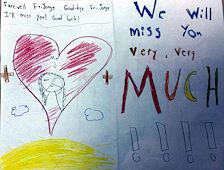 Farewell Fr. Jorge Goodbye Fr. Jorge
I'll miss you! Good luck!
We Will
miss You
very, very
MUCH
!!!!